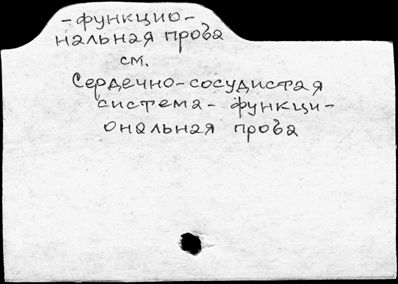 -функцио-
нальная проба
см.
Сердечно-сосудистая
система - функци-
ональная проба